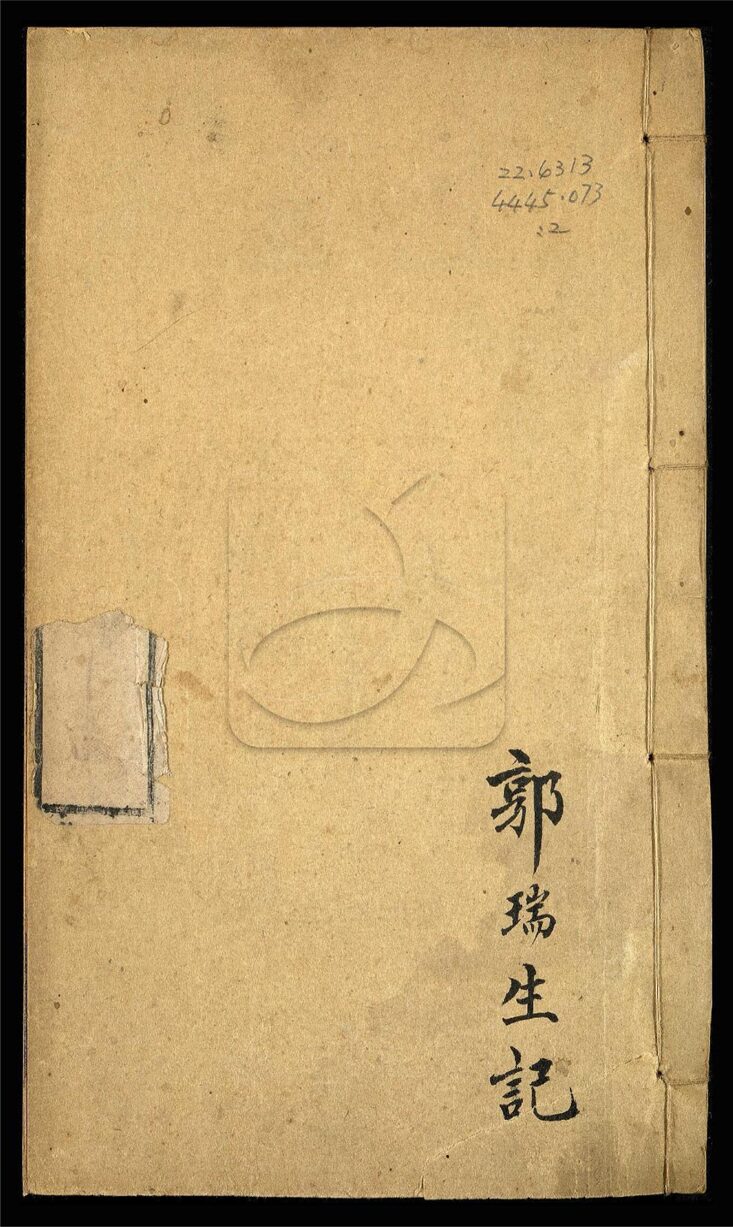 22.6313
4445.073
:2
郭瑞生記